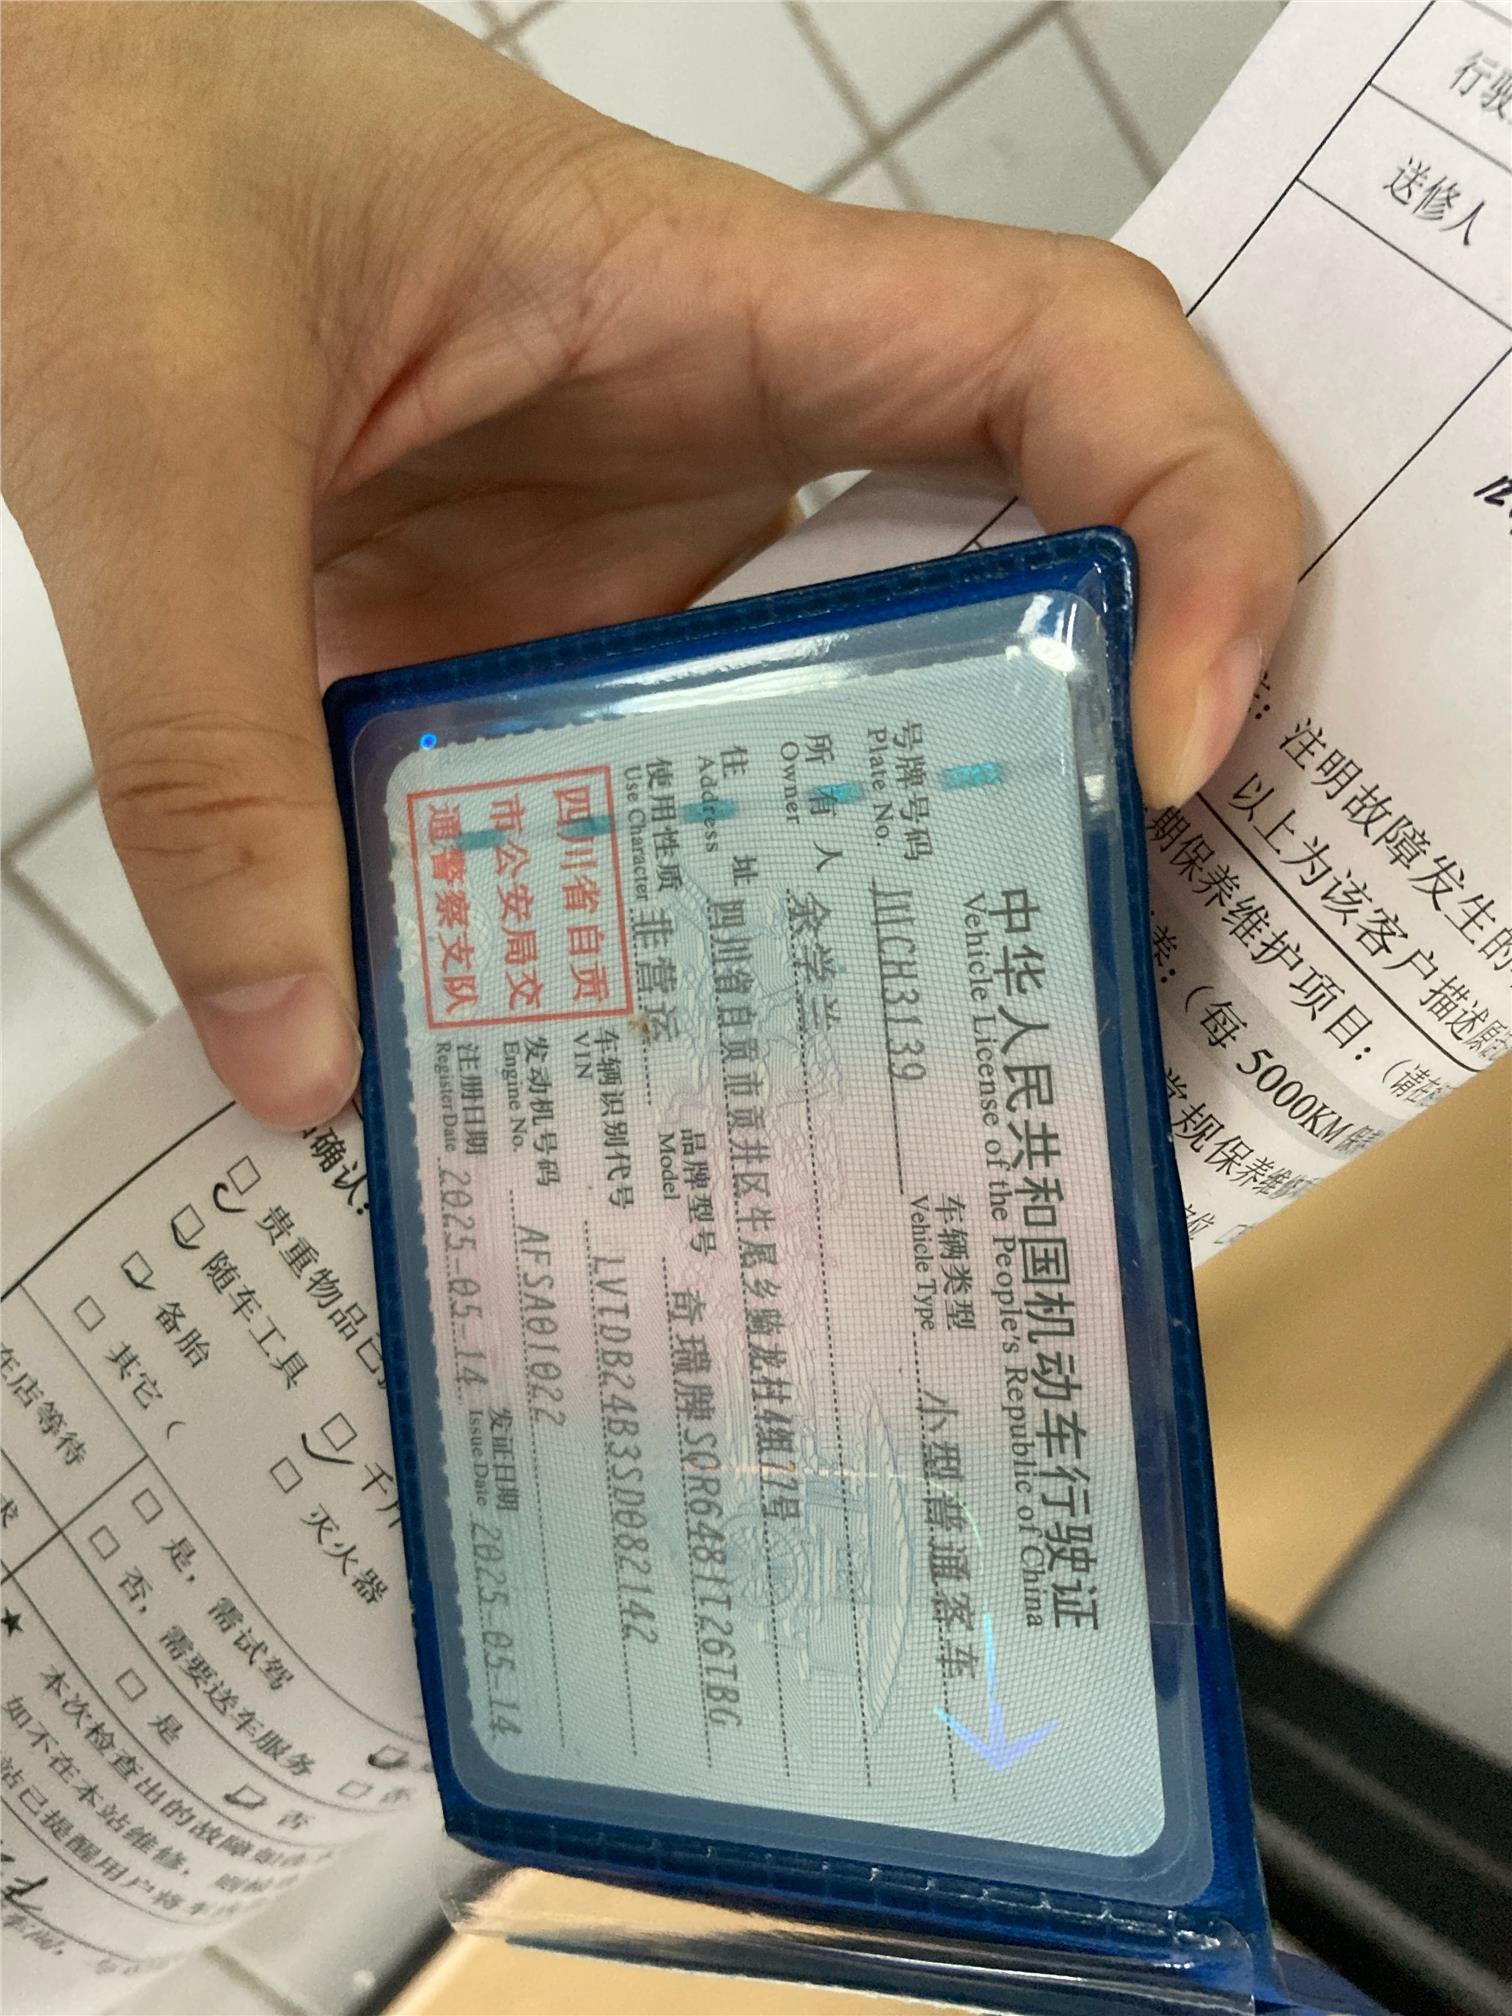 中华人民共和国机动车行驶证
Vehicle License of the People's Republic of China
号牌号码 川CH3139 车辆类型 小型普通客车
Plate No. Vehicle Type
所有人 余学兰
Owner
住址 四川省自贡市贡井区牛尾乡骑龙村4组77号
Address
使用性质 非营运 品牌型号 奇瑞牌SQR6481T26TBG
Use Character Model
四川省自贡
市公安局交
通警察支队
车辆识别代号 LVTDB24B3SD082142
VIN
发动机号码 AFSA01022
Engine No.
注册日期 2025-05-14 发证日期 2025-05-14
Register Date Issue Date
送修人
注明故障发生的
以上为该客户描述
期保养维护项目：
（每 5000KM
常规保养
确认：
贵重物品已
随车工具
备胎
其它（
灭火器
在店等待
是，需试驾
否，需要送车服务
是
否
★
本次检查出的故障如
如不在本站维修，
站已提醒用户将车